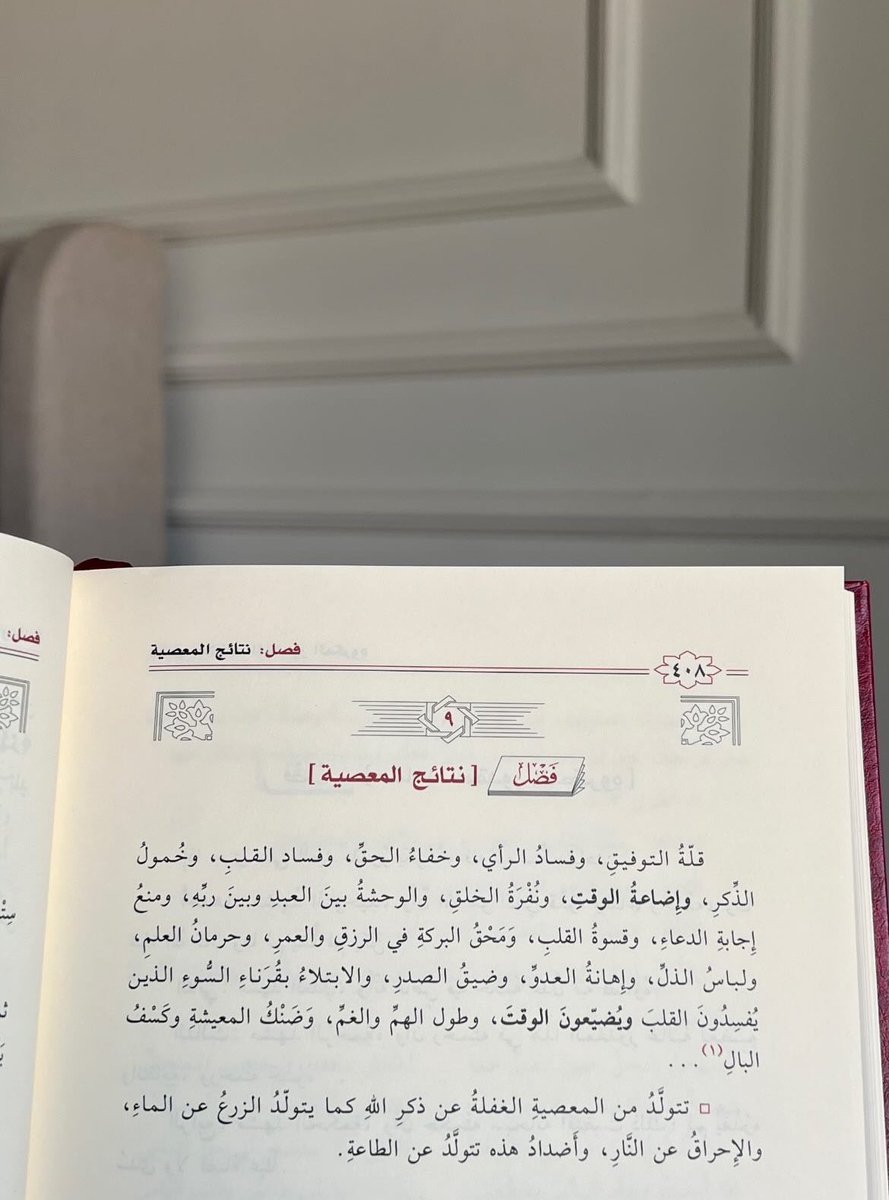 فصل: نتائج المعصية
٤٠٨
٩
فَصْل [نتائج المعصية]
قلّةُ التوفيقِ، وفسادُ الرأي، وخفاءُ الحقِّ، وفساد القلبِ، وخُمولُ
الذِّكرِ، وإضاعةُ الوقتِ، ونُفْرَةُ الخلقِ، والوحشةُ بينَ العبدِ وبينَ ربِّهِ، ومنعُ
إجابةِ الدعاءِ، وقسوةُ القلبِ، وَمَحْقُ البركةِ في الرزقِ والعمرِ، وحرمانُ العلمِ،
ولباسُ الذلِّ، وإهانةُ العدوِّ، وضيقُ الصدرِ، والابتلاءُ بقُرَناءِ السُّوءِ الذين
يُفسِدُونَ القلبَ ويُضيّعونَ الوقتَ، وطول الهمِّ والغمِّ، وَضَنْكُ المعيشةِ وكَسْفُ
البالِ(١) ...
□ تتولَّدُ من المعصيةِ الغفلةُ عن ذكرِ اللهِ كما يتولّدُ الزرعُ عن الماءِ،
والإحراقُ عن النَّارِ، وأضدادُ هذه تتولَّدُ عن الطاعةِ.
فصل: